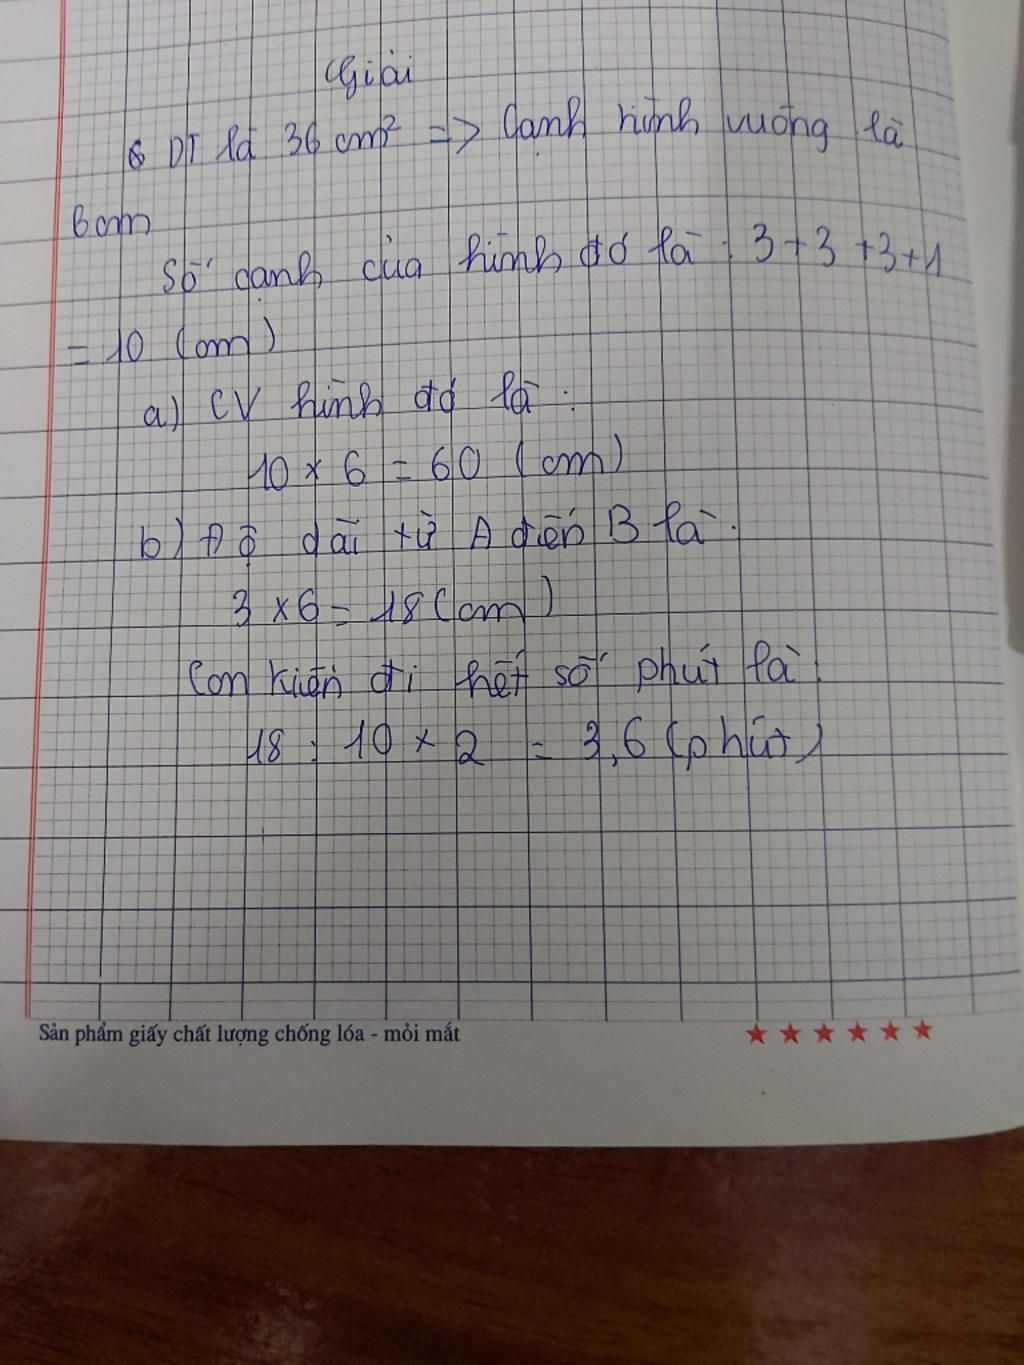 Giải
DT là 36 cm² => Cạnh hình vuông là
6cm
Số cạnh của hình đó là : 3 + 3 + 3 + 1
= 10 (cm)
a) CV hình đó là :
10 × 6 = 60 (cm)
b) Độ dài từ A đến B là :
3 × 6 = 18 (cm)
Con kiến đi hết số phút là :
18 : 10 × 2 = 3,6 (phút)
Sản phẩm giấy chất lượng chống lóa - mỏi mắt